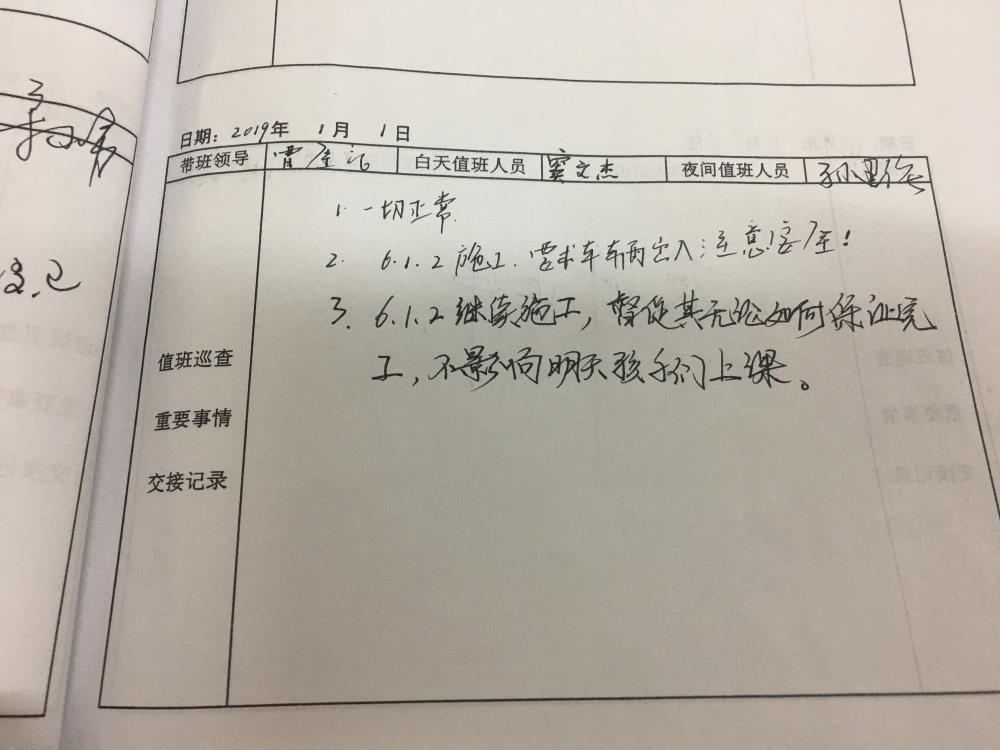 日期：2019年 1月 1日
带班领导 白天值班人员 窦文杰 夜间值班人员
1. 一切正常
2. 6.1.2施工.要求车辆出入注意安全!
3. 6.1.2继续施工，督促其无论如何保证完
工，不影响明天孩子们上课。
值班巡查
重要事情
交接记录